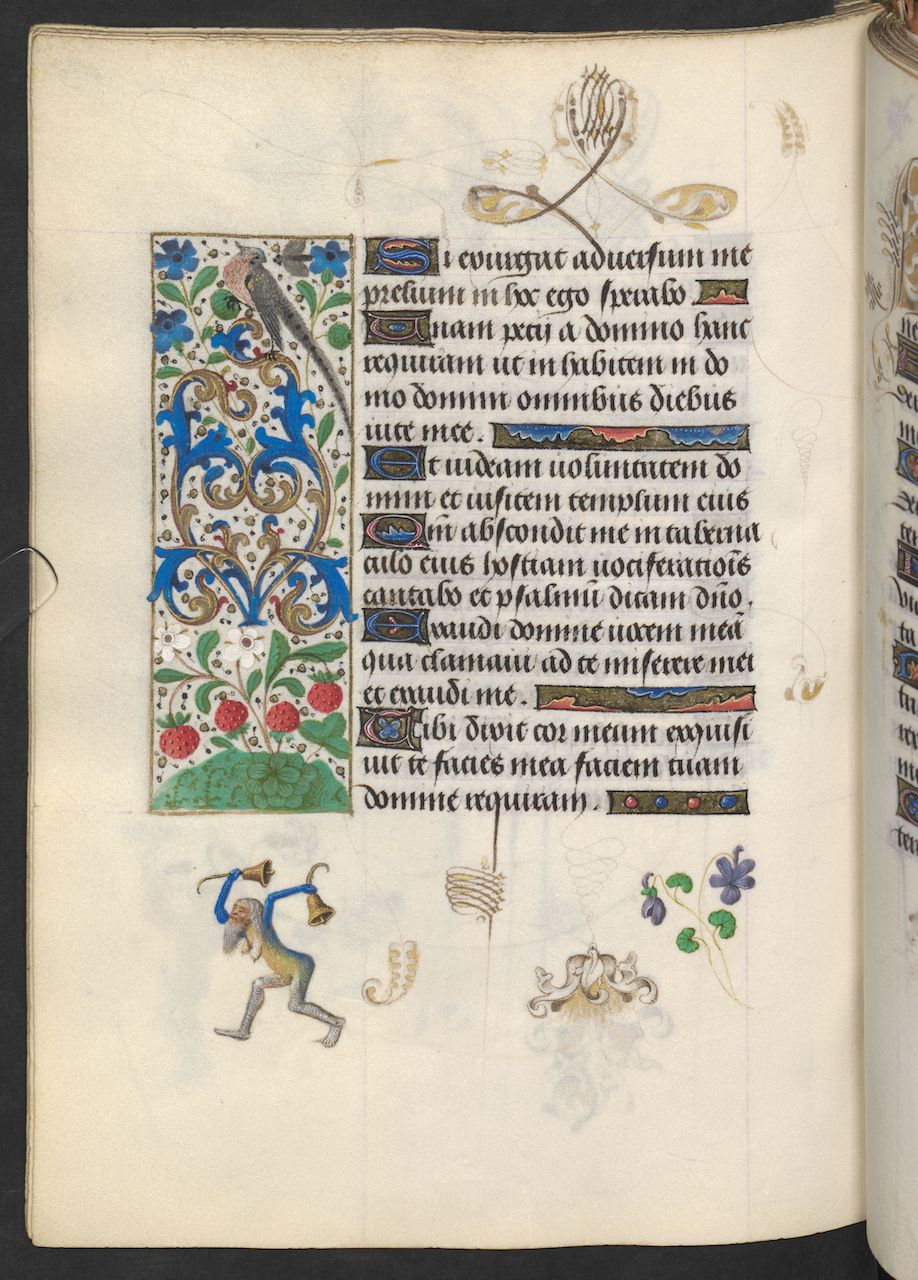 Si exurgat adversum me
prelium in hoc ego sperabo
Unam pecii a domino hanc
requiram ut inhabitem in do
mo domini omnibus diebus
uite mee.
Et uideam uoluntatem do
mini et uisitem templum eius
Qm̄ abscondit me in taberna
culo eius hostiam uociferatiōis
cantabo et psalmū dicam dño.
Exaudi domine uocem meā
qua clamaui ad te miserere mei
et exaudi me.
Tibi dixit cor meum exquisi
uit te facies mea faciem tuam
domine requiram.